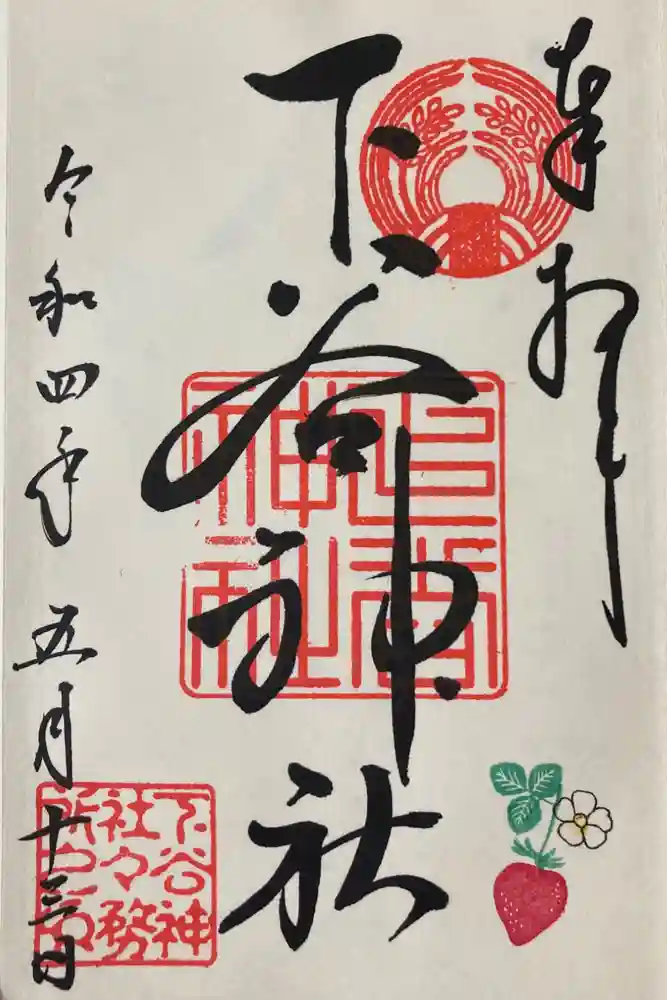 奉拝
下谷神社
下谷神社
令和四年 五月十三日
下谷神
社々務
所之印